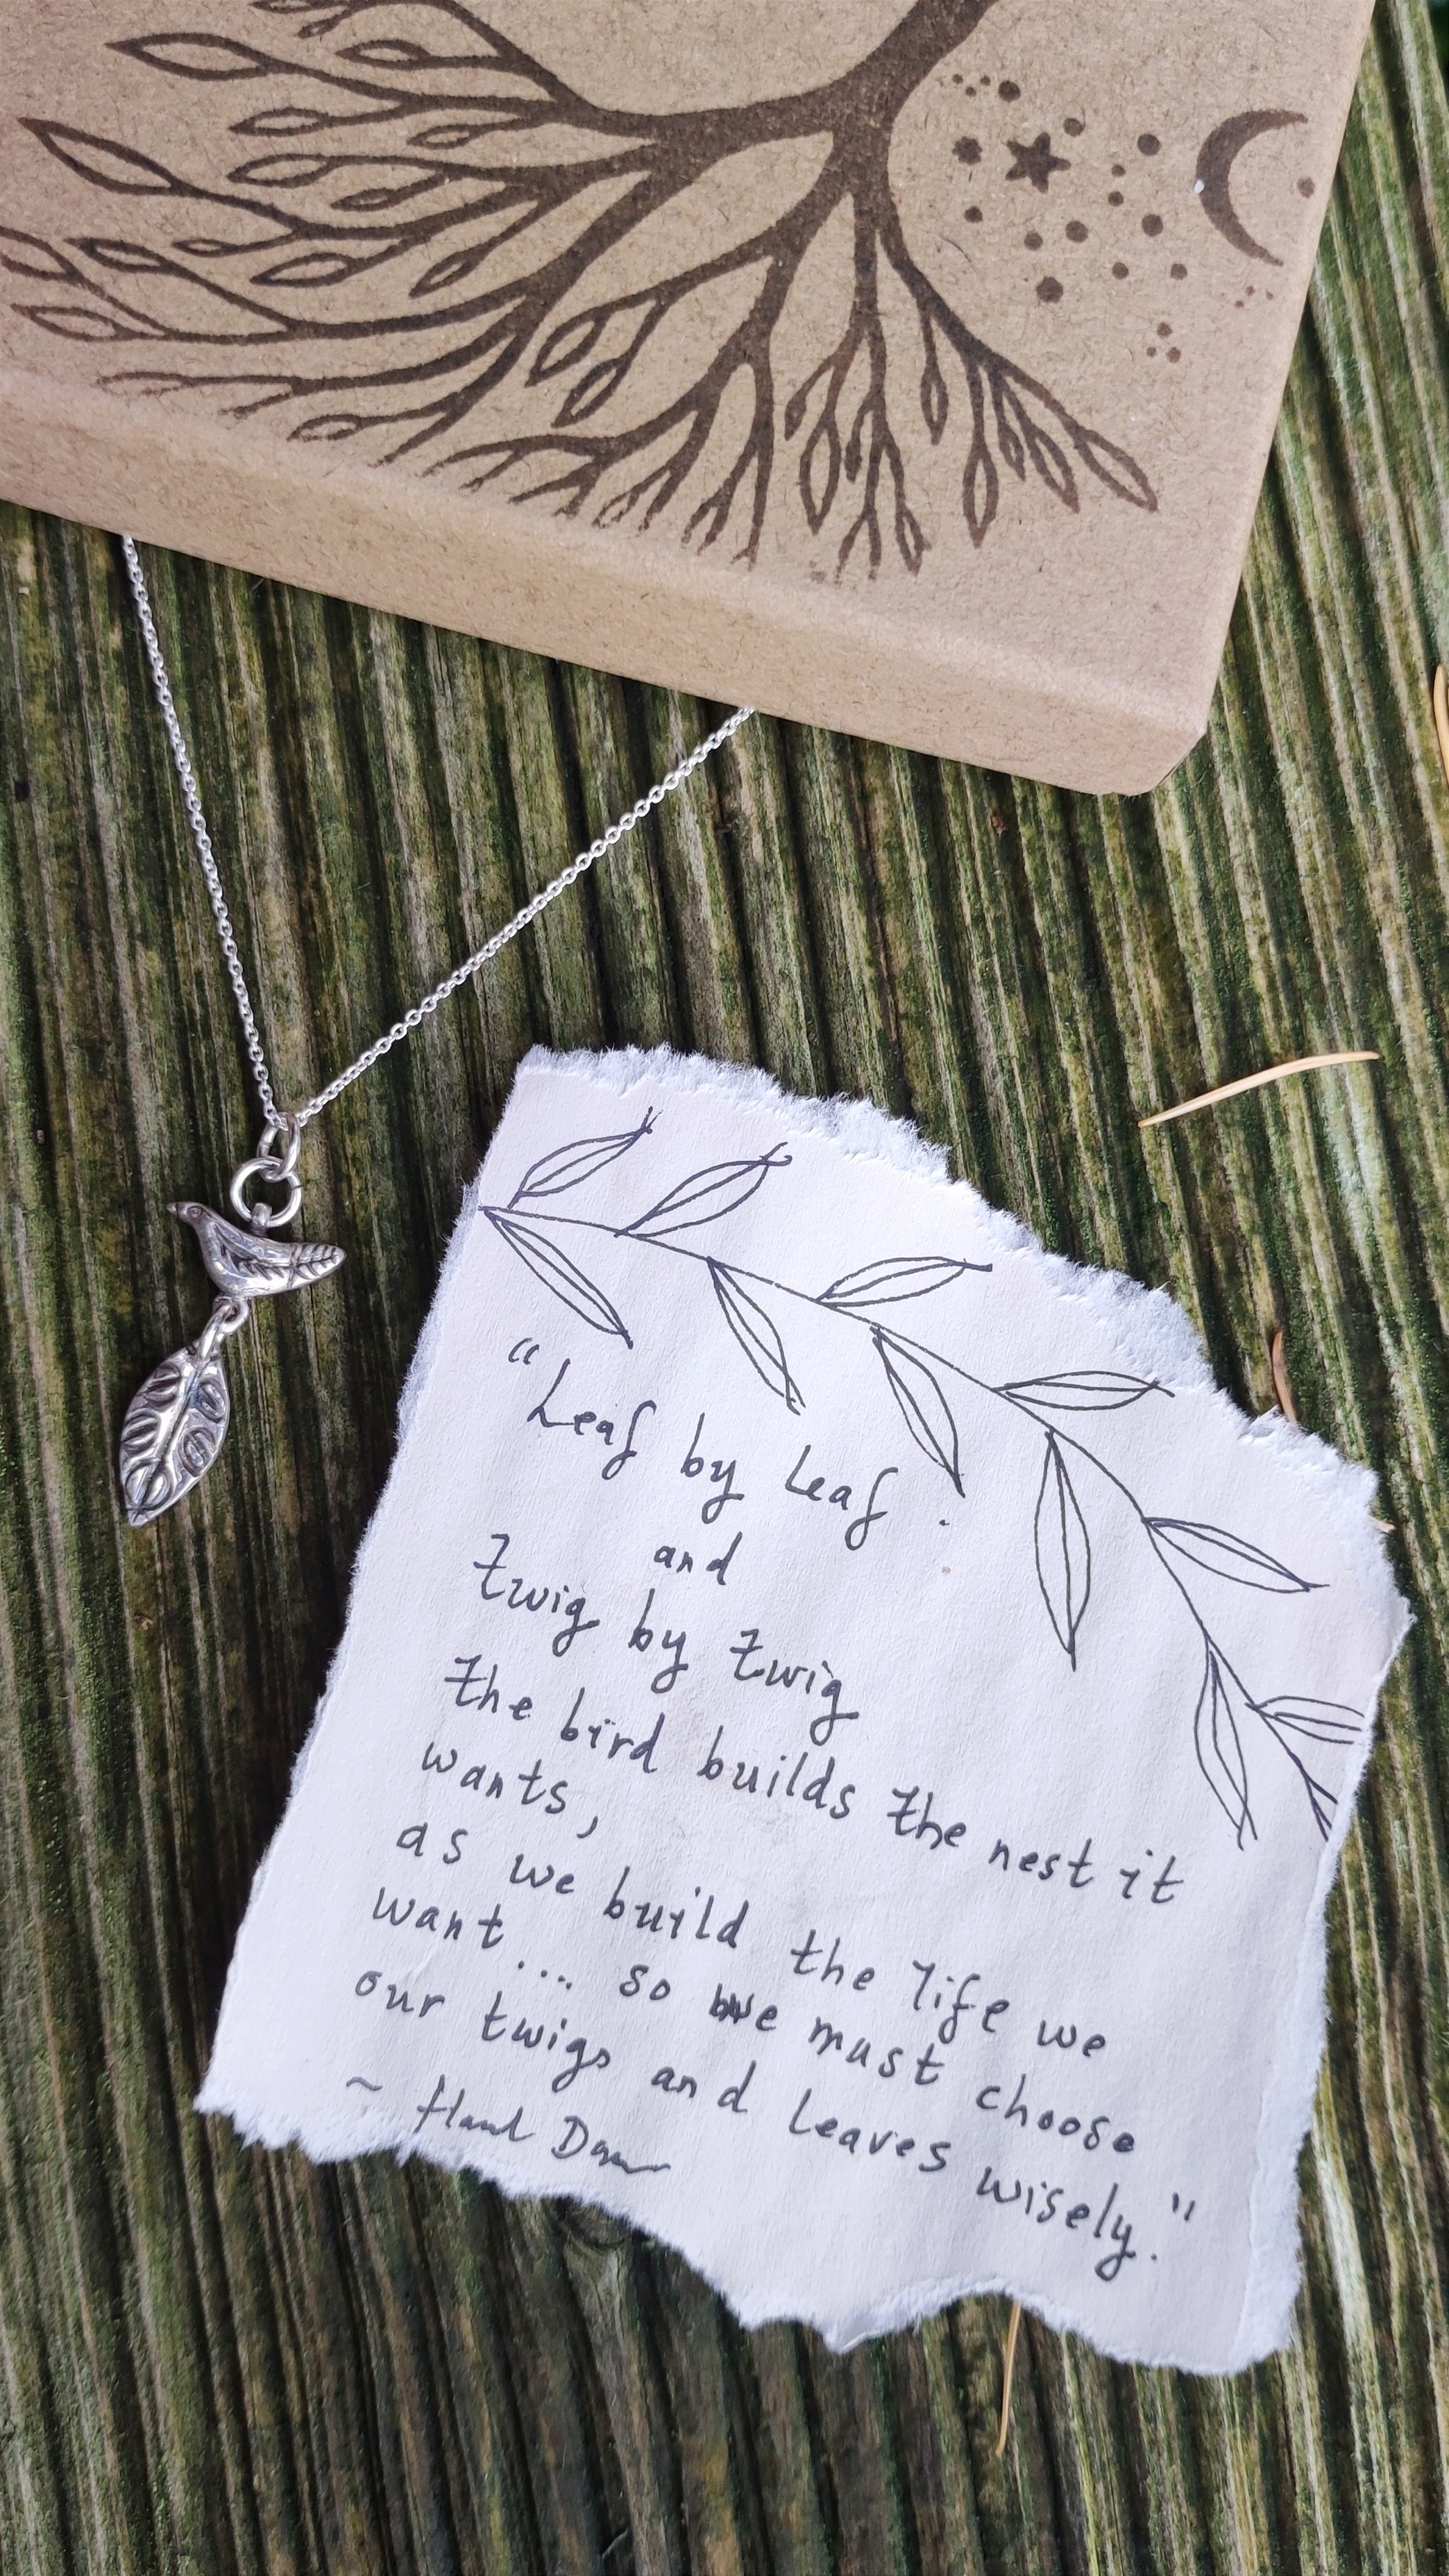 "Leaf by Leaf
and
twig by twig
the bird builds the nest it
wants,
as we build the life we
want.... so we must choose
our twigs and leaves wisely."
~